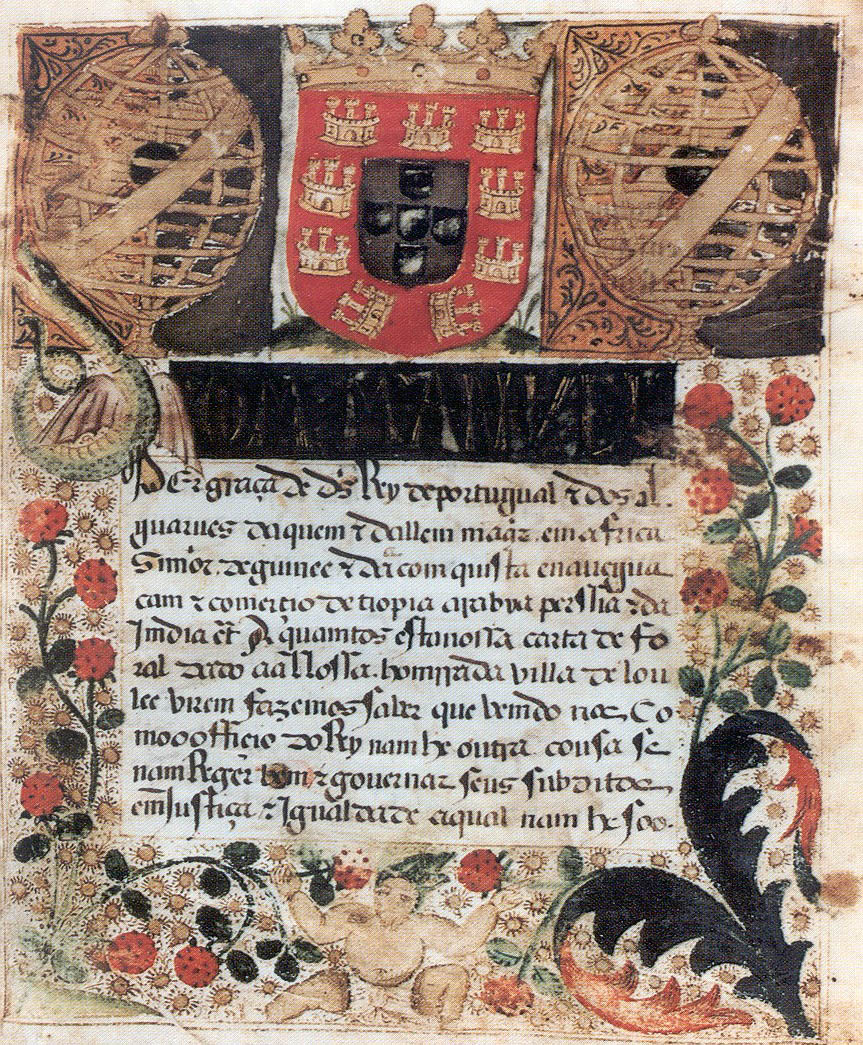 PEr graça de d's Rey de portugual & dos al.
guarues daquem & dallem maar. em africa
Snnor. de guinee & da com quista e nauegua
cam & comercio de tiopia arabya perssia & da
Imdia &ct A quamtos esta nossa carta de fo
ral dado aa homrrada villa de lou
lee virem fazemos saber que vemdo nos Co
moo officio do Rey nam he outra cousa se
nam Reger bem & gouernar seus subditos
em Justiça & Igualdade aqual nam he soo.